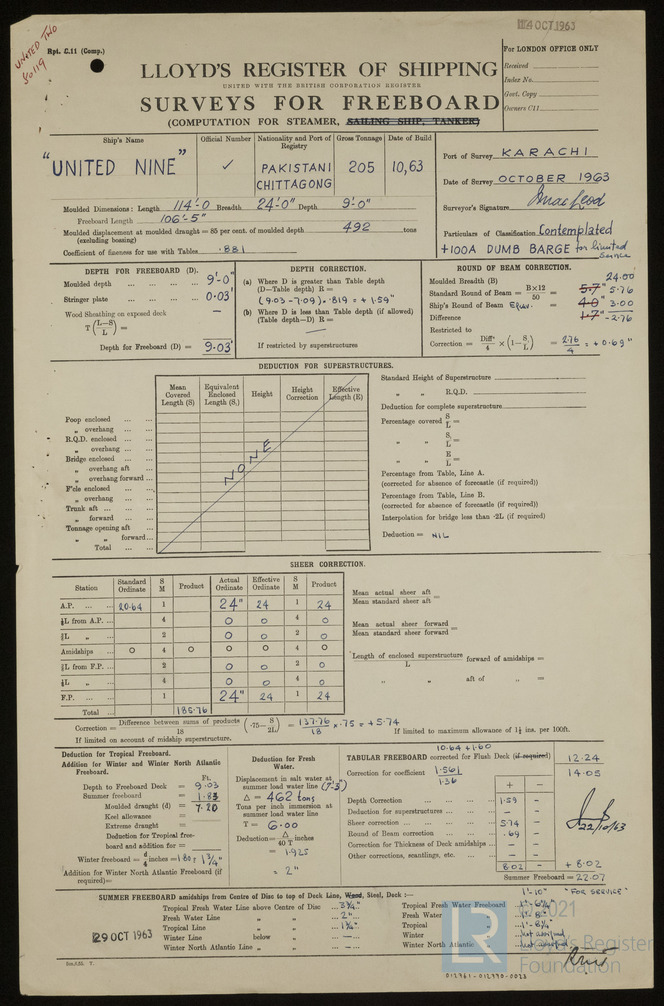 4 OCT 1963
UNITED TWO
50119
Rpt. C.11 (Comp.)
For LONDON OFFICE ONLY
Received
Index No.
Govt. Copy
Owners C11
LLOYD'S REGISTER OF SHIPPING
UNITED WITH THE BRITISH CORPORATION REGISTER
SURVEYS FOR FREEBOARD
(COMPUTATION FOR STEAMER, SAILING SHIP, TANKER)
Ship's Name Official Number Nationality and Port of Registry Gross Tonnage Date of Build
"UNITED NINE" ✓ PAKISTANI CHITTAGONG 205 10,63
Port of Survey KARACHI
Date of Survey OCTOBER 1963
Surveyor's Signature
Particulars of Classification Contemplated
+100A DUMB BARGE for limited service
Moulded Dimensions: Length 114'-0 Breadth 24'-0" Depth 9'-0"
Freeboard Length 106'-5"
Moulded displacement at moulded draught = 85 per cent. of moulded depth 492 tons
(excluding bossing)
Coefficient of fineness for use with Tables .881
DEPTH FOR FREEBOARD (D).
Moulded depth ... 9'-0"
Stringer plate ... 0.03'
Wood Sheathing on exposed deck —
T(L-S/L) =
Depth for Freeboard (D) = 9.03'
DEPTH CORRECTION.
(a) Where D is greater than Table depth
(D—Table depth) R =
(9.03 - 7.09) × .819 = + 1.59"
(b) Where D is less than Table depth (if allowed)
(Table depth—D) R =
If restricted by superstructures
ROUND OF BEAM CORRECTION.
Moulded Breadth (B) 24.00'
Standard Round of Beam = B×12/50 = 5.7" 5.76
Ship's Round of Beam = 4.0 3.00
Difference 1.7" -2.76
Restricted to
Correction = Diff/4 × (1-S/L) = 2.76/4 = +0.69"
DEDUCTION FOR SUPERSTRUCTURES.
Mean Covered Length (S) Equivalent Enclosed Length (S₁) Height Height Correction Effective Length (E)
Poop enclosed
„ overhang
R.Q.D. enclosed
„ overhang
Bridge enclosed
„ overhang aft
„ overhang forward
F'cle enclosed
„ overhang
Trunk aft
„ forward
Tonnage opening aft
„ „ forward
Total
NONE
Standard Height of Superstructure
„ „ R.Q.D.
Deduction for complete superstructure
Percentage covered S/L =
„ „ S₁/L =
„ „ E/L =
Percentage from Table, Line A.
(corrected for absence of forecastle (if required))
Percentage from Table, Line B.
(corrected for absence of forecastle (if required))
Interpolation for bridge less than ·2L (if required)
Deduction = NIL
SHEER CORRECTION.
Station Standard Ordinate S M Product Actual Ordinate Effective Ordinate S M Product
A.P. 20.64 1 24" 24 1 24
⅙L from A.P. 4 0 0 4 0
⅓L „ 2 0 0 2 0
Amidships 0 4 0 0 0 4 0
⅓L from F.P. 2 0 0 2 0
⅙L „ 4 0 0 4 0
F.P. 1 24" 24 1 24
Total 185.76
Mean actual sheer aft
Mean standard sheer aft =
Mean actual sheer forward
Mean standard sheer forward =
Length of enclosed superstructure/L forward of amidships =
„ „ aft of „ =
Correction = Difference between sums of products/18 (·75—S/2L) = 137.76/18 × .75 = + 5.74
If limited on account of midship superstructure.
If limited to maximum allowance of 1½ ins. per 100ft.
Deduction for Tropical Freeboard.
Addition for Winter and Winter North Atlantic Freeboard.
Ft.
Depth to Freeboard Deck = 9.03
Summer freeboard = 1.83
Moulded draught (d) = 7.20
Keel allowance =
Extreme draught =
Deduction for Tropical freeboard and addition for
Winter freeboard = d/4 inches = 1.80 = 1¾"
Addition for Winter North Atlantic Freeboard (if required) =
Deduction for Fresh Water.
Displacement in salt water at summer load water line (7'-3")
Δ = 462 tons
Tons per inch immersion at summer load water line
T = 6.00
Deduction = Δ/40 T inches
= 1.925
= 2"
10.64 + 1.60
TABULAR FREEBOARD corrected for Flush Deck (if required) 12.24
Correction for coefficient 1.561/1.36 14.05
+ —
Depth Correction 1.59 —
Deduction for superstructures — —
Sheer correction 5.74 —
Round of Beam correction .69 —
Correction for Thickness of Deck amidships — —
Other corrections, scantlings, etc. — —
8.02 — + 8.02
Summer Freeboard = 22.07
22/10/63
1'-10" "FOR SERVICE"
SUMMER FREEBOARD amidships from Centre of Disc to top of Deck Line, Wood, Steel, Deck :—
Tropical Fresh Water Line above Centre of Disc 3¾"
Fresh Water Line „ „ 2"
Tropical Line „ „ 1¾"
Winter Line below „ —
Winter North Atlantic Line „ „ —
Tropical Fresh Water Freeboard 1'-6¼"
Fresh Water „ 1'-8"
Tropical „ 1'-8¼"
Winter „ not assigned
Winter North Atlantic „ not assigned
29 OCT 1963
LR
2021
Lloyd's Register
Foundation
012361-012370-0023